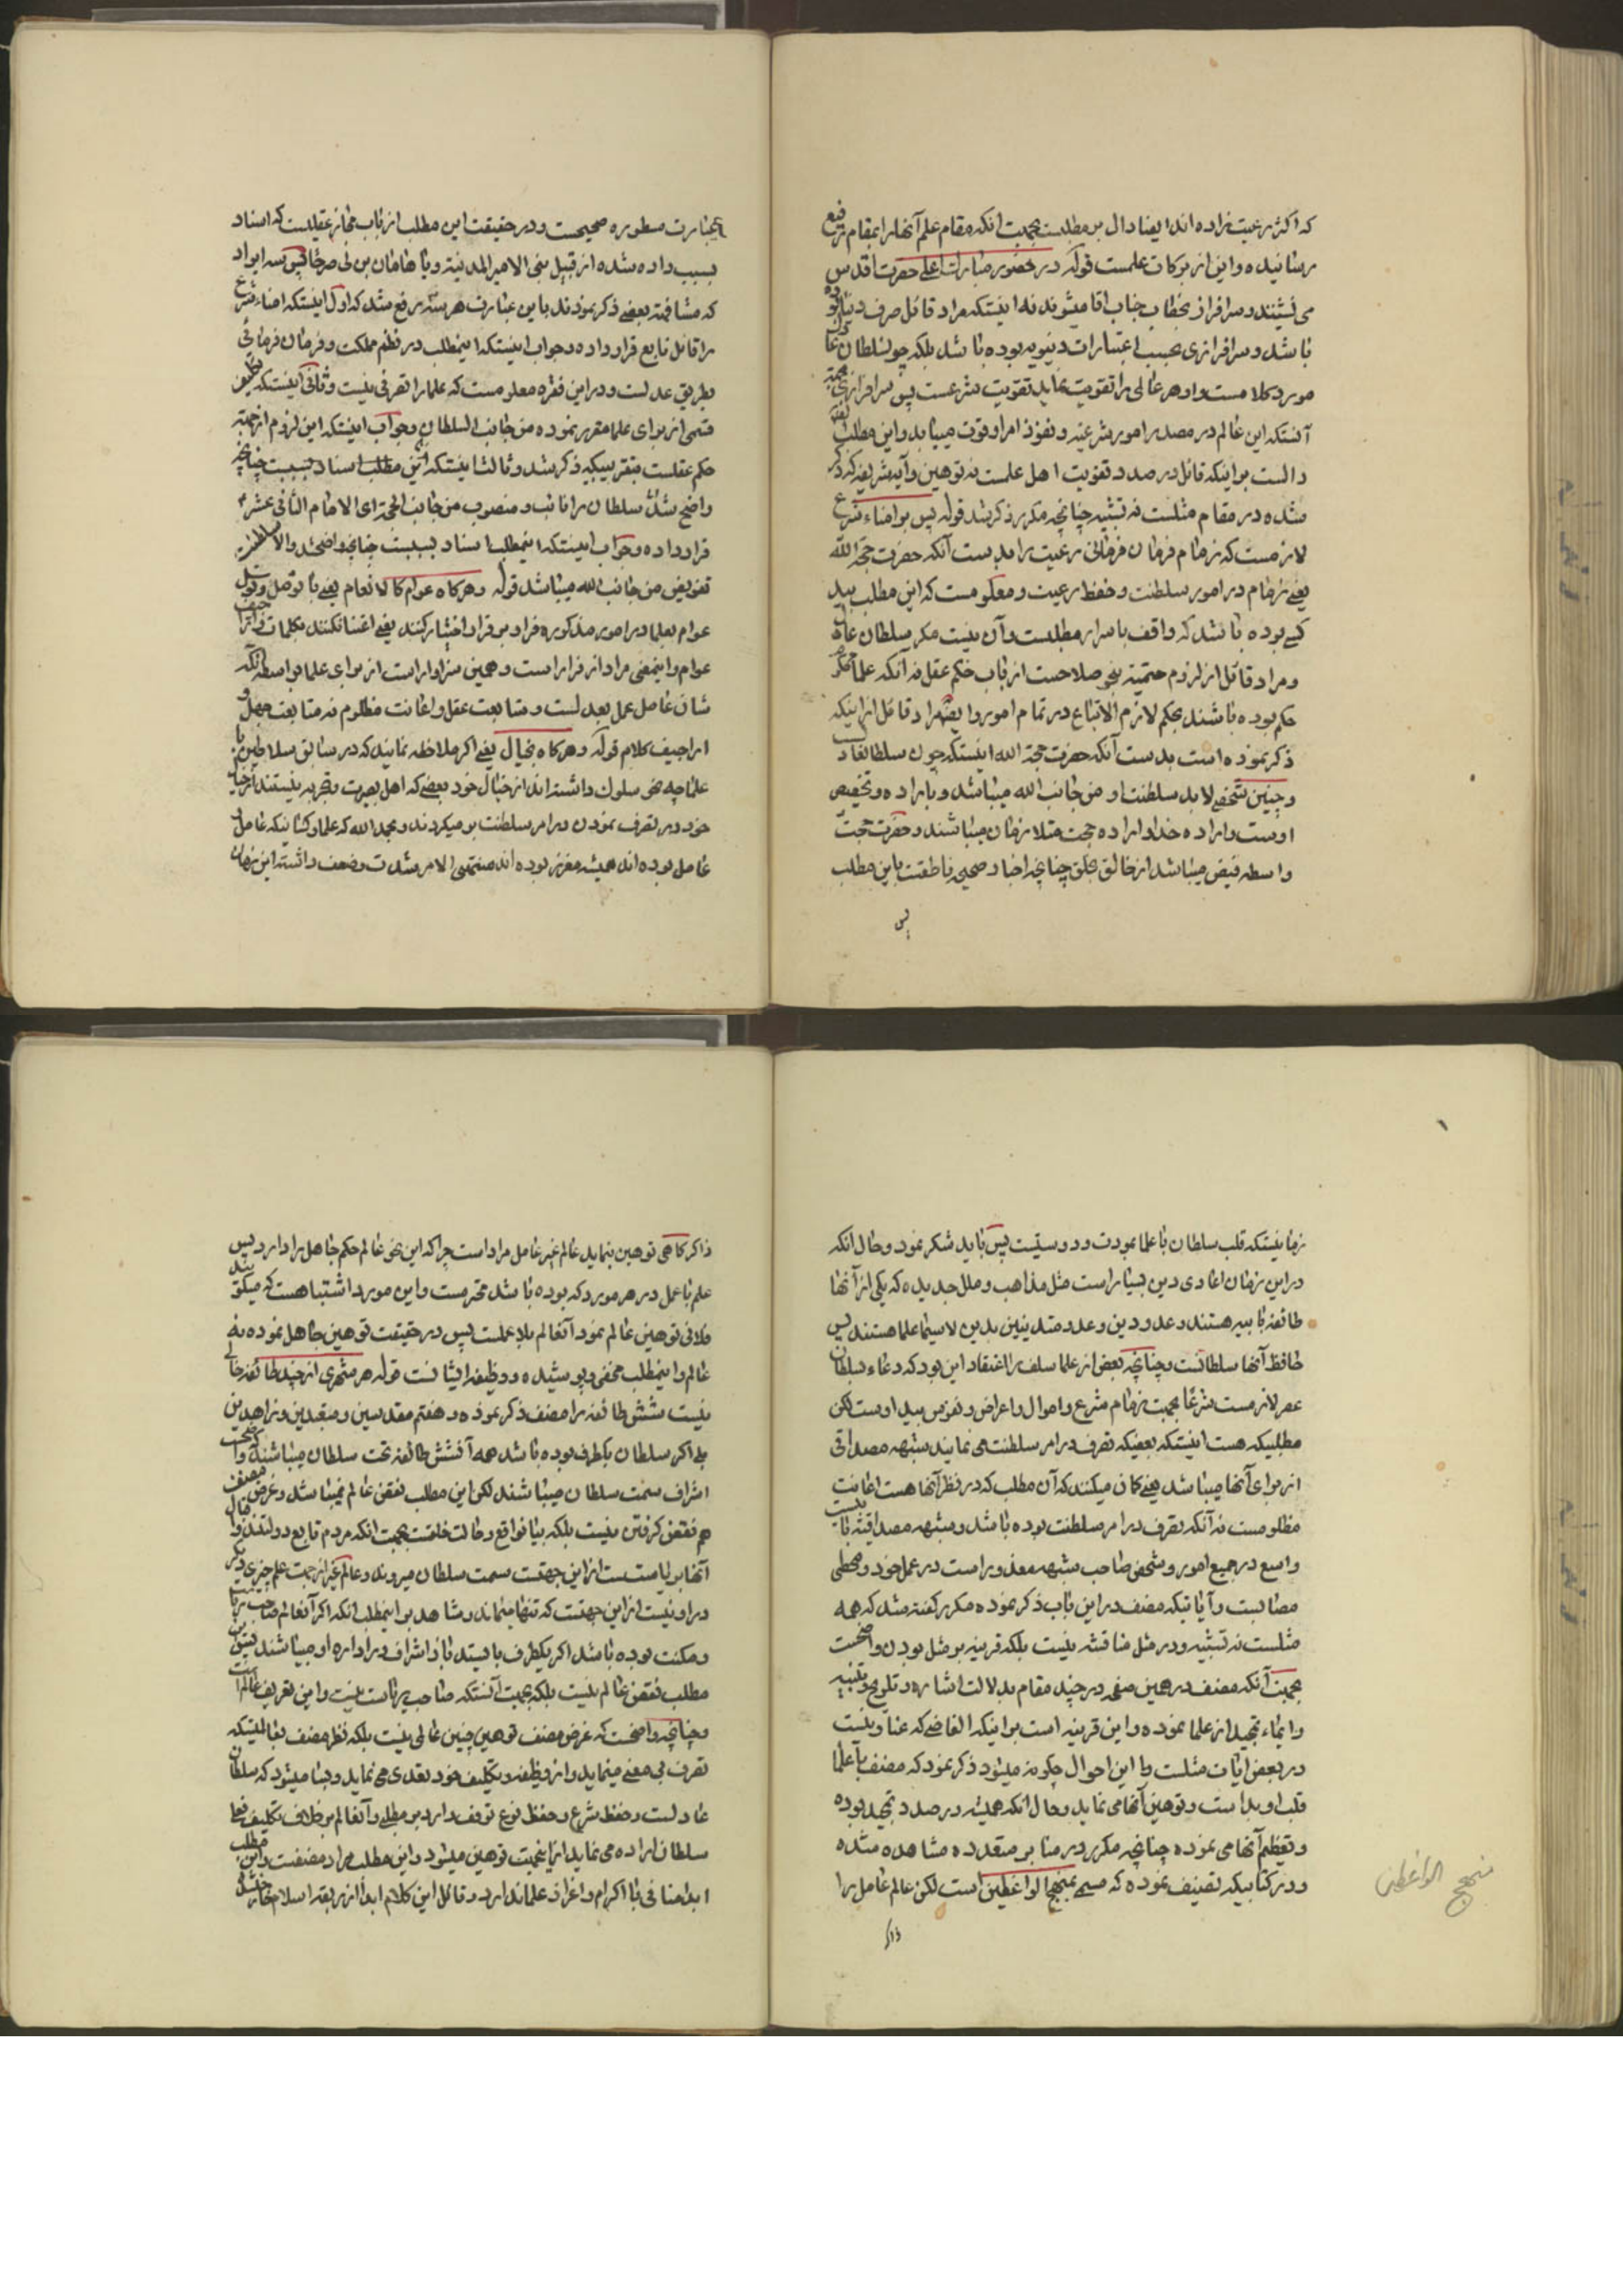 که اکثر رعیت زاده اند ایضا دال بر مطلبست بجهت انکه مقام علم آنها را بمقام رفیع
رسانیده و این از برکات علمست قوله در حضور مبارک اعلی حضرت اقدس
می نشینند و سرافراز بخطاب جناب اقا میشوند نه اینستکه مراد قائل صرف دنیا بوده
باشد و سرافرازی بحسب اعتبارات دنیویه بوده باشد بلکه چون سلطان عادل
مورد کلامست و او هر عالمی را تقویت نماید تقویت شرعست پس سرافرازی بجهة
آنستکه این عالم در مصدر امور شرعیه و نفوذ امر او قوت مییابد و این مطلب
دالست بر اینکه قائل در صدد تقویت اهل علمست نه توهین و آیه شریفه که ذکر
شده در مقام مثلست نه تشبیه چنانچه مکرر ذکر شد قوله پس بر امناء شرع
لازمست که زمام فرمان فرمائی رعیت را بدست آنکه حضرت حجة الله
یعنی زمام در امور سلطنت و حفظ رعیت و معلومست که این مطلب بید
کسی بوده باشد که واقف باسرار مطلبست و آن نیست مکر سلطان عادل
و مراد قائل از لزوم حتمیته بنحو صلاحست از باب حکم عقل نه آنکه علما
حکم بوده باشند بحکم لازم الاتباع در تمام امور و ایضا مراد قائل از اینکه
ذکر نموده است بدست آنکه حضرت حجة الله اینستکه چون سلطان
و چنین شخصی لابد سلطنت او من جانب الله میباشد و باراده و تخصیص
اوست و اراده خدا و اراده حجت متلازمان میباشند و حضرت حجت
واسطه فیض میباشد از خالق بخلق چنانچه اخبار صحیحه ناطقست باین مطلب
پس
عبارت مسطوره صحیحست و در حقیقت این مطلب از باب مجاز عقلیست که اسناد
بسبب داده شده از قبیل بنی الامیر المدینة و یا هامان بن لی صرحا پس سه ایراد
که مشافهة بعضی ذکر نمودند باین عبارت هر سه رفع شد که اول اینستکه امناء شرع
را قائل تابع قرار داده و جواب اینستکه اینمطلب در نظم مملکت و فرمان فرمائی
بطریق عدلست و در این فقره معلومست که علما را تصرفی نیست و ثانی اینستکه
قسمی از برای علما مقرر نموده من جانب السلطان و جواب اینستکه این لزوم از جهة
حکم عقلست بتقریبیکه ذکر شد و ثالثا اینستکه این مطلب اسناد بسببست چنانچه
واضح شد سلطان را نائب و منصوب من جانب الحجة ای الامام الثانی عشر
قرار داده و جواب اینستکه اینمطلب اسناد بسببست چنانچه واضح شد والا سلطنت
تفویض من جانب الله میباشد قوله و هرکاه عوام کالانعام یعنی با توصل و توسل
عوام بعلما در امور مذکوره فرار بر قرار اختیار کنند یعنی اعتنا نکنند بکلمات و اراجیف
عوام و اینمعنی مراد از فرار است و همین سزاوار است از برای علما بواسطه آنکه
شان عامل عمل بعدلست و متابعت عقل و اعانت مظلوم نه متابعت جهل و
اراجیف کلام قوله و هرکاه بخیال یعنی اکر ملاحظه نمایند که در سابق سلاطین با
علما چه نحو سلوک داشته اند از خیال خود بعضی که اهل بصیرت و تجربه نیستند از خیال
خود در تصرف نمودن در امر سلطنت برمیکردند و بحمد الله که علما و کسانیکه عامل
عامل بوده اند همیشه معزز بوده اند منتهی الامر شدت و ضعف داشته این زمان
زمانیستکه قلب سلطان با علما بمودت و دوستیست پس باید شکر نمود و حال انکه
در این زمان اعادی دین بسیار است مثل مذاهب و ملل جدیده که یکی از آنها
طائفه بابیه هستند و عدو دین و عدو متدینین بدین لاسیما علما هستند پس
حافظ آنها سلطانست و چنانچه بعض از علما سلف را اعتقاد این بود که دعاء سلطان
عصر لازمست شرعا بجهت زمام شرع و اموال و اعراض و نفوس بید اوست لکن
مطلبیکه هست اینستکه بعضیکه تصرف در امر سلطنت می نمایند شبهه مصداقی
از برای آنها میباشد یعنی کمان میکنند که آن مطلب که در نظر آنها هست اعانت
مظلومست نه آنکه تصرف در امر سلطنت بوده باشد و شبهه مصداقیه بابیست
واسع در جمیع امور و شخص صاحب شبهه معذور است در عمل خود و مخطی
مصابست و آیاتیکه مصنف در این باب ذکر نموده مکرر کفته شد که همه
مثلست نه تشبیه و در مثل مناقشه نیست بلکه قرینه بر مثل بودن واضحست
بجهت آنکه مصنف در همین صفحه در چند مقام بدلالت اشاره و تلویح و تنبیه
و ایماء تمجید از علما نموده و این قرینه است بر اینکه الفاظی که
در بعض ایات مثلست با این احوال چکونه میشود ذکر نمود که مصنف با علما
قلب او بد است و توهین آنها می نماید و حال انکه همیشه در صدد تمجید بوده
و تعظیم آنها می نموده چنانچه مکرر در منابر متعدده مشاهده شده
و در کتابیکه تصنیف نموده که مسمی بمنهج الواعظین است لکن عالم عامل را
ذاکر
منهج الواعظین
ذاکر کاهی توهین بنماید عالم غیر عامل مراد است چرا که این نحو عالم حکم جاهل را دارد پس
علم با عمل در هر مورد که بوده باشد محترمست و این مورد اشتباهست که میکویند
فلانی توهین عالم نمود آنعالم بلا عملست پس در حقیقت توهین جاهل نموده نه
عالم و اینمطلب مخفی و پوشیده و وظیفه ایشانست قوله هر شهری از چند طائفه خالی
نیست شش طائفه را مصنف ذکر نموده و هفتم مقدسین و متعبدین و زاهدین
بلی اکر سلطان بکطرف بوده باشد همه آنشش طائفه تحت سلطان میباشند و واضحست
اشراف سمت سلطان میباشند لکن این مطلب نقص عالم نمیباشد و غرض مصنف
هم نقص کرفتن نیست بلکه بیان واقع و حالت خلقست بجهت انکه مردم تابع دولتند و مال
آنها بریاستست از این جهتست سمت سلطان میروند و عالم غیر از جهت علم چیزی دیکر
در او نیست از این جهتست که تنها میماند و شاهد بر اینمطلب انکه اکر آنعالم صاحب ریاست
و مکنت بوده باشد اکر یکطرف بایستد باز اشراف در اداره او میباشند پس این
مطلب نقص عالم نیست بلکه بجهت آنستکه صاحب ریاست نیست و این تعریف عالم است
و چنانچه واضحست که غرض مصنف توهین چنین عالمی نیست بلکه نظر مصنف بعالمیستکه
تصرف بی معنی مینماید و از وظیفه و تکلیف خود تعدی می نماید و بسا میشود که سلطان
عادلست و حفظ شرع و حفظ نوع توقف دارد بر مطلبی و آنعالم بر خلاف تکلیف فعلی
سلطان اراده می نماید از اینجهت توهین میشود و این مطلب مراد مصنفست و این مطلب
ابدا منافی با اکرام و اعزاز علما ندارد و قائل این کلام ابدا از ربقه اسلام خارج نشده